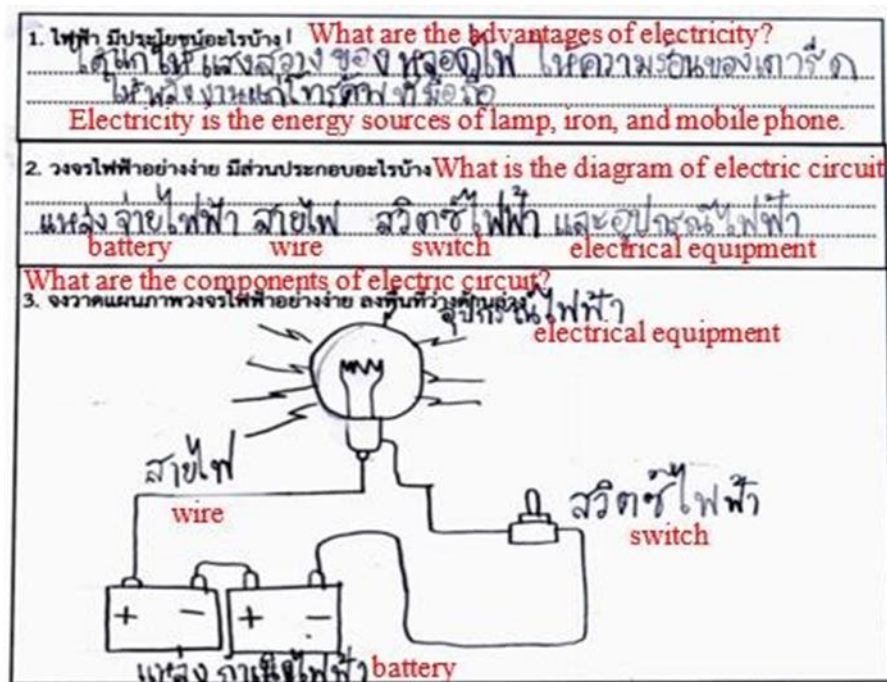 1. ไฟฟ้า มีประโยชน์อะไรบ้าง What are the advantages of electricity?
ได้แก่ให้แสงสว่าง ของ หลอดไฟ ให้ความร้อนของเตารีด
ให้พลังงานแก่โทรศัพท์มือถือ
Electricity is the energy sources of lamp, iron, and mobile phone.
2. วงจรไฟฟ้าอย่างง่าย มีส่วนประกอบอะไรบ้าง What is the diagram of electric circuit
แหล่งจ่ายไฟฟ้า สายไฟ สวิตช์ไฟฟ้า และอุปกรณ์ไฟฟ้า
battery wire switch electrical equipment
What are the components of electric circuit?
3. จงวาดแผนภาพวงจรไฟฟ้าอย่างง่าย ลงพื้นที่ว่างด้านล่าง
อุปกรณ์ไฟฟ้า
electrical equipment
สายไฟ
wire
สวิตช์ไฟฟ้า
switch
+ − + −
แหล่งกำเนิดไฟฟ้า battery